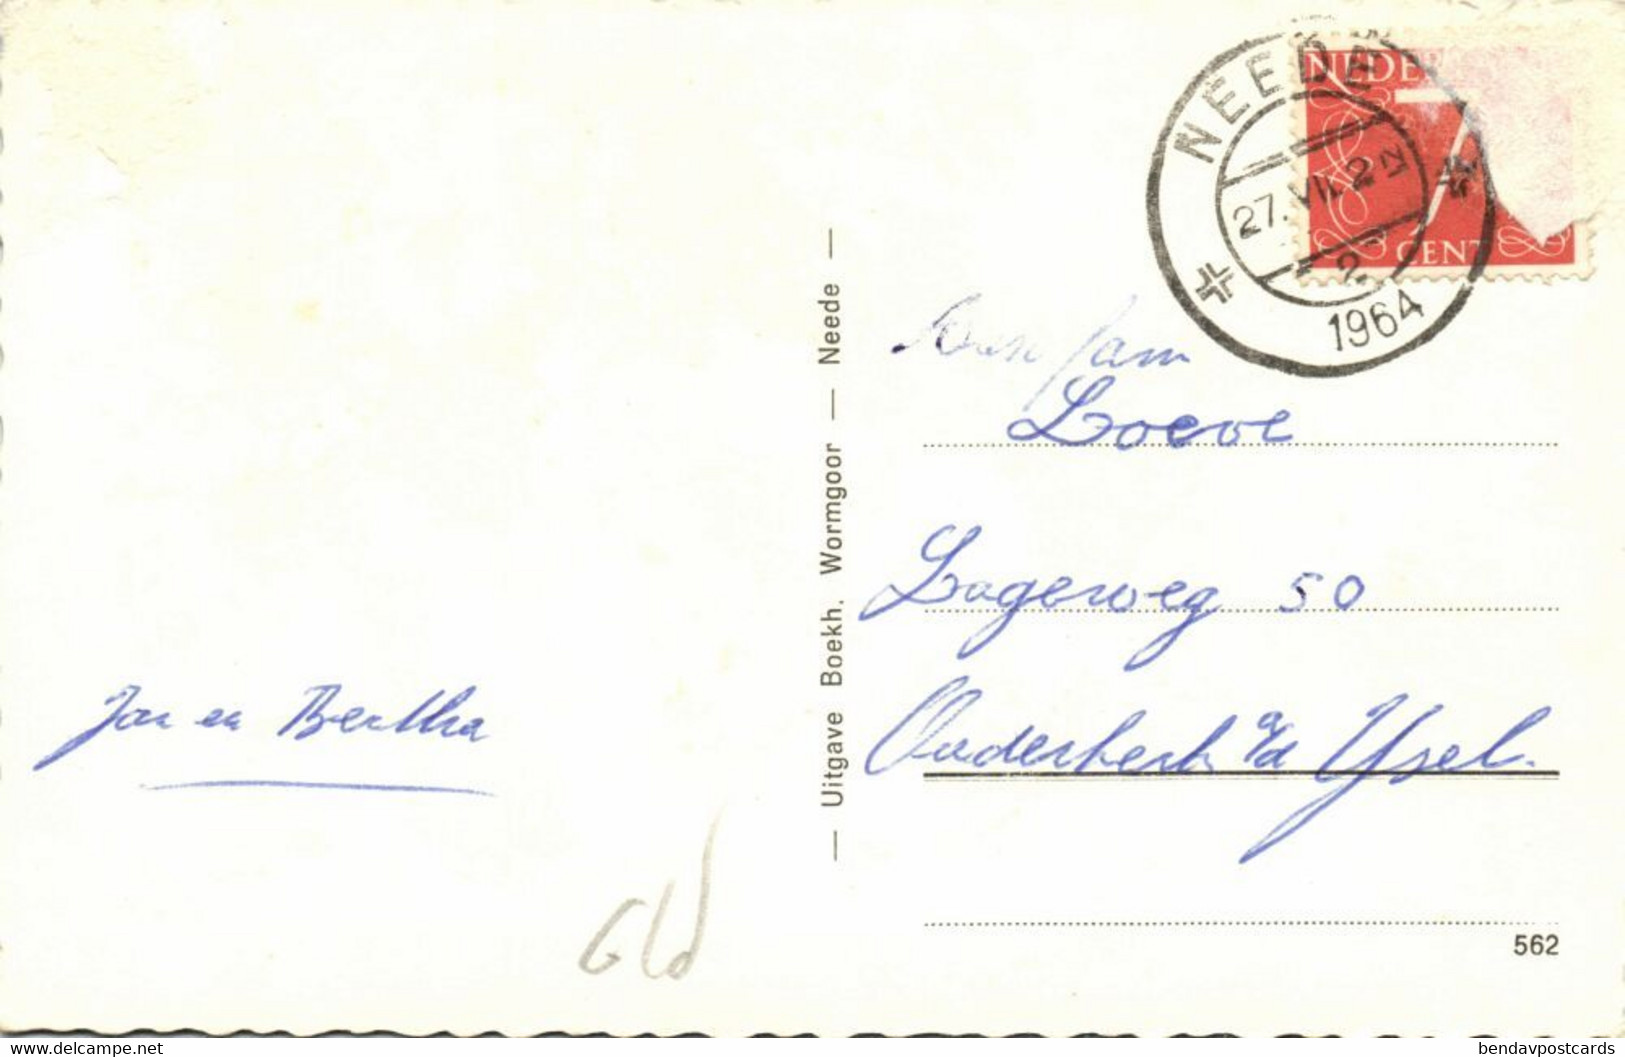 NEEDE
27.VII.2
2
1964
NEDE
CENT
Aan fam
Loeve
Lageweg 50
Ouderkerk a/d IJsel.
Jan en Bertha
— Uitgave Boekh. Wormgoor — Neede —
Gld
562
www.delcampe.net
bendavpostcards